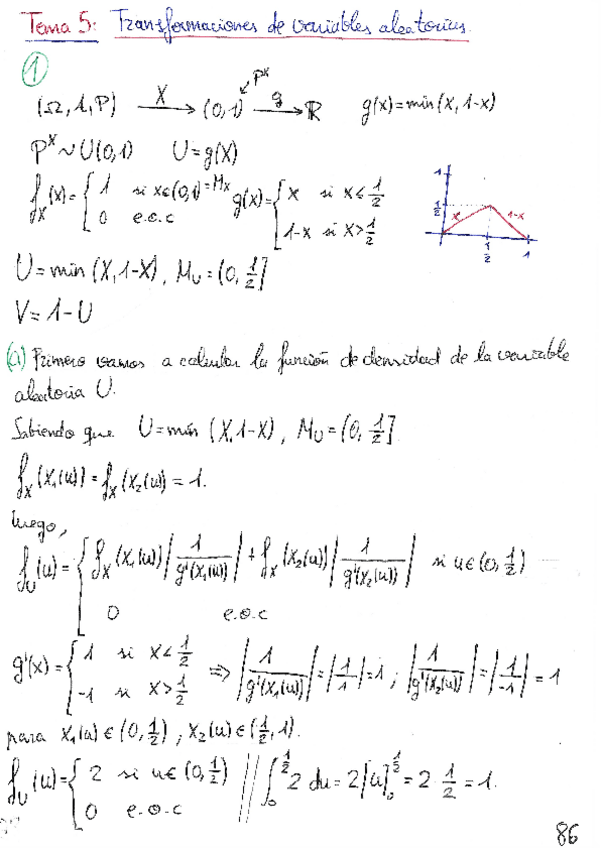 Tema 5: Transformaciones de variables aleatorias.
1
(Ω, A, P) —X→ (0,1) —g→ ℝ   g(x)=min(x, 1-x)
P^X
P^X ~ U(0,1)   U=g(X)
f_X(x)= { 1 si x∈(0,1)=M_X ; 0 e.o.c   g(x)= { x si x≤1/2 ; 1-x si x>1/2
1   1/2   x   1-x   1/2   1
U=min (X, 1-X), M_U=(0, 1/2]
V= 1-U
(a) Primero vamos a calcular la función de densidad de la variable
aleatoria U.
Sabiendo que U=min (X, 1-X), M_U=(0, 1/2]
f_X(x₁(u))=f_X(x₂(u))=1.
luego,
f_U(u)= { f_X(x₁(u)) |1/g'(x₁(u))| + f_X(x₂(u)) |1/g'(x₂(u))| si u∈(0, 1/2) ; 0 e.o.c
g'(x)= { 1 si x<1/2 ; -1 si x>1/2 ⇒ |1/g'(x₁(u))|=|1/1|=1 ; |1/g'(x₂(u))|=|1/-1|=1
para x₁(u)∈(0, 1/2), x₂(u)∈(1/2, 1).
f_U(u)= { 2 si u∈(0, 1/2) ; 0 e.o.c // ∫₀^{1/2} 2 du = 2[u]₀^{1/2} = 2·1/2 = 1.
86